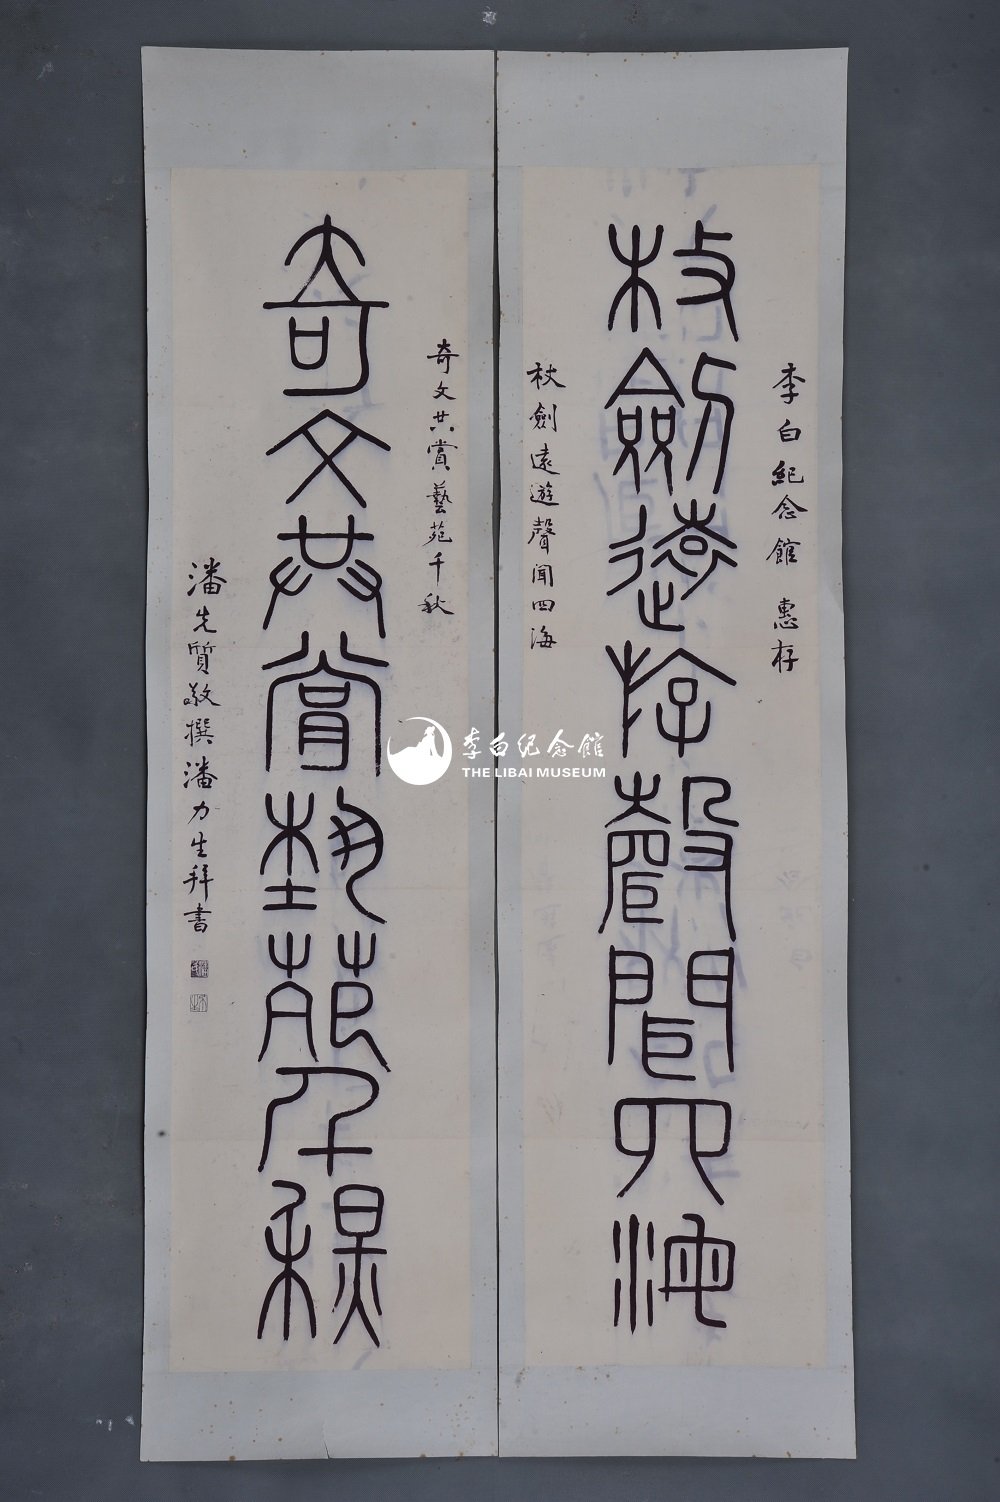 李白紀念館 惠存
杖劍遠遊聲聞四海
杖劍遠遊聲聞四海
奇文共賞藝苑千秋
奇文共賞藝苑千秋
潘先質敬撰潘力生拜書
李白纪念館
THE LIBAI MUSEUM